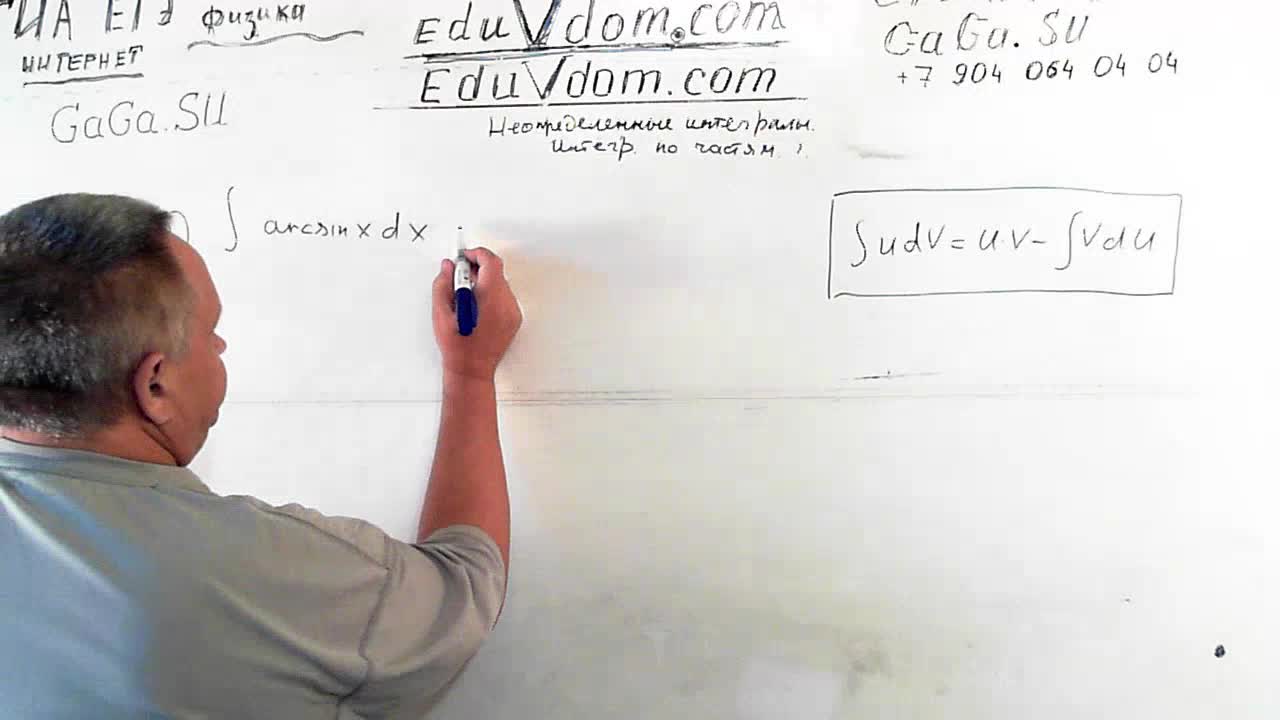 ЕГЭ физика
ИНТЕРНЕТ
GaGa.SU
EduVdom.com
EduVdom.com
Неопределенные интегралы.
Интегр. по частям.
GaGa.SU
+7 904 064 04 04
∫ arcsin x dx
∫udV = u·V - ∫Vdu